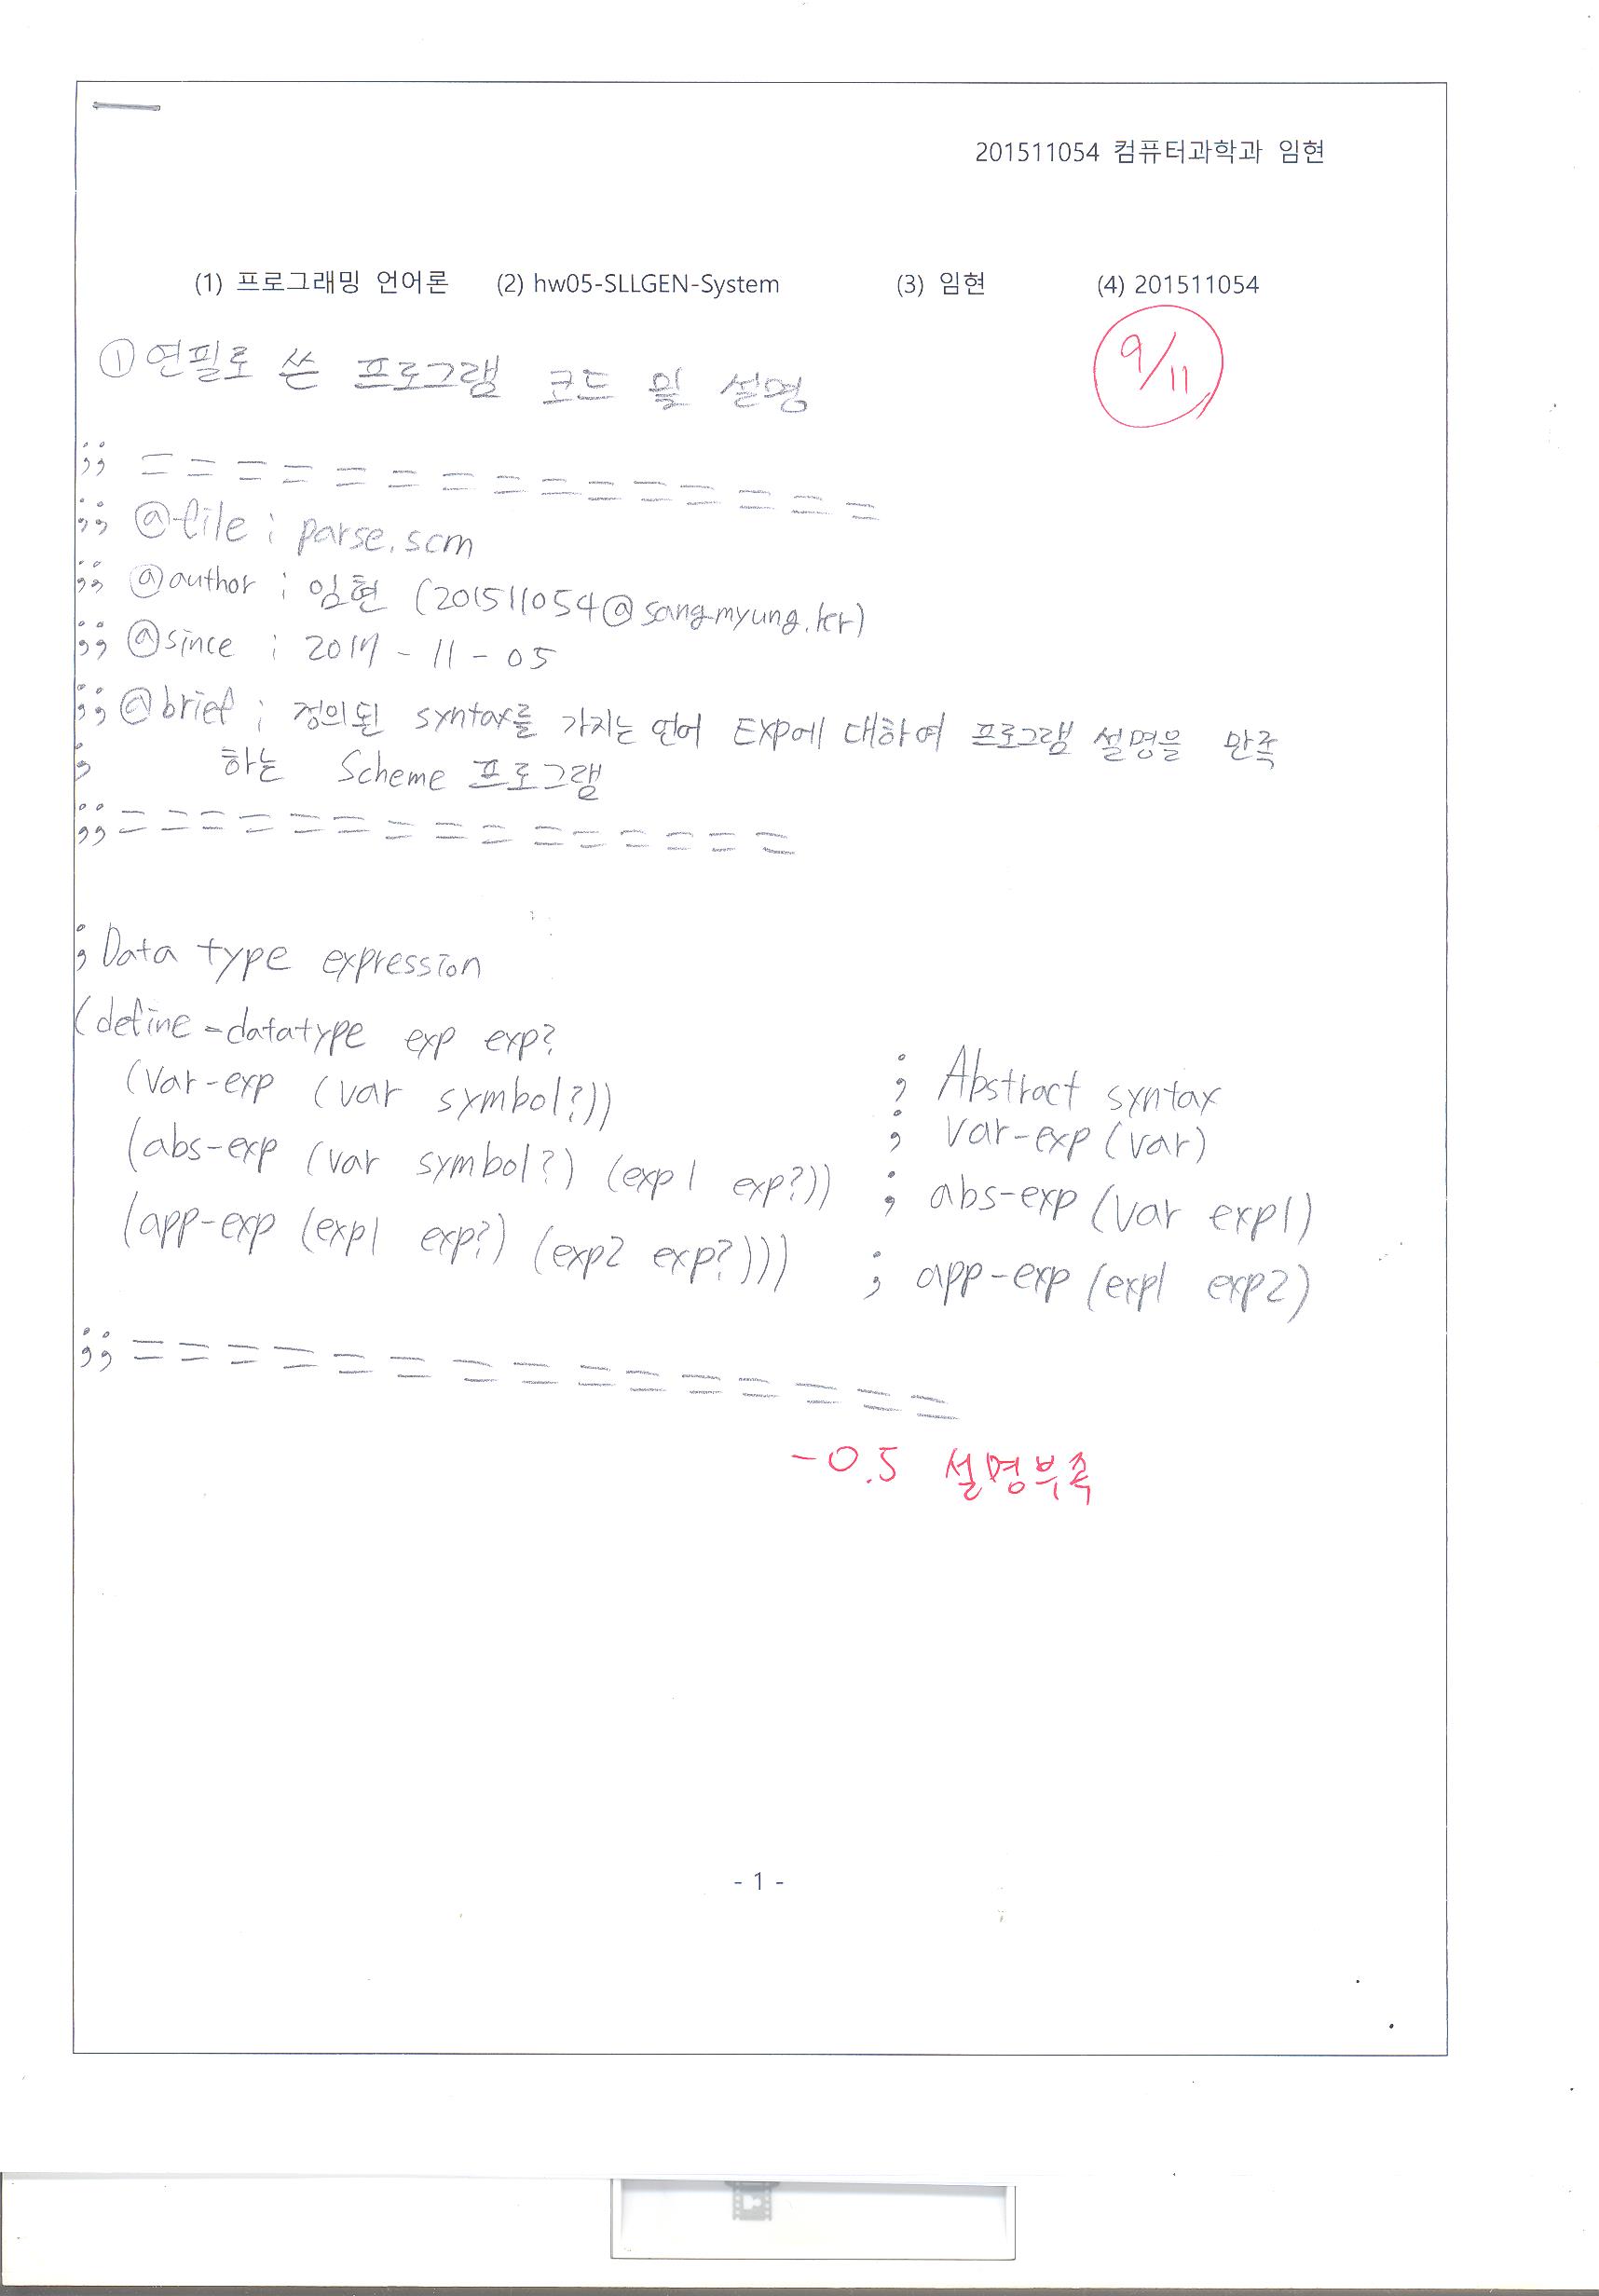 201511054 컴퓨터과학과 임현
(1) 프로그래밍 언어론 (2) hw05-SLLGEN-System (3) 임현 (4) 201511054
9/11
① 연필로 쓴 프로그램 코드 및 설명
;; = = = = = = = = = = = = = = =
;; @file : parse.scm
;; @author : 임현 (201511054@sangmyung.kr)
;; @since : 2017 - 11 - 05
;; @brief : 정의된 syntax를 가지는 언어 EXP에 대하여 프로그램 설명을 만족
; 하는 Scheme 프로그램
;; = = = = = = = = = = = = = = =
; Data type expression
(define-datatype exp exp?
(var-exp (var symbol?)) ; Abstract syntax
; var-exp (var)
(abs-exp (var symbol?) (exp1 exp?)) ; abs-exp (var exp1)
(app-exp (exp1 exp?) (exp2 exp?))) ; app-exp (exp1 exp2)
;; = = = = = = = = = = = = = = =
-0.5 설명부족
- 1 -